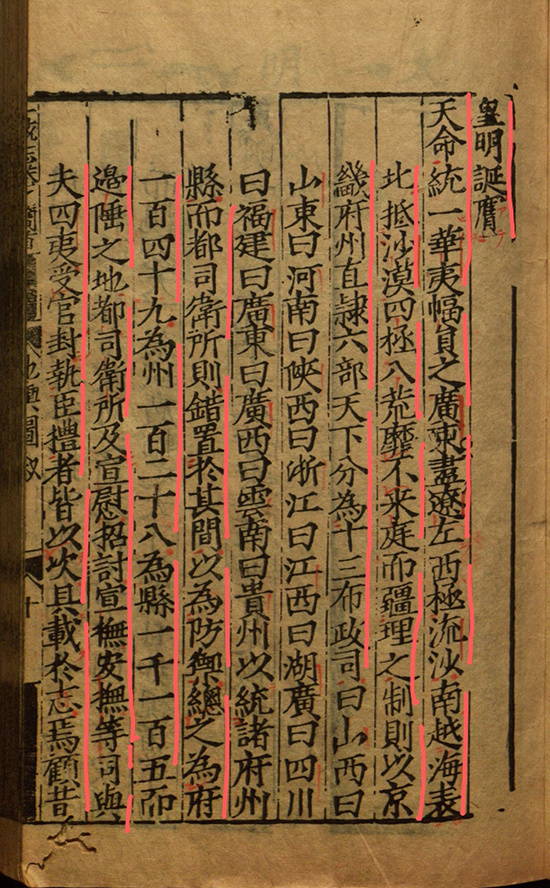 皇明誕膺
天命統一華夷幅員之廣東盡遼左西極流沙南越海表
北抵沙漠四極八荒靡不来庭而疆理之制則以京
畿府州直隷六部天下分為十三布政司曰山西曰
山東曰河南曰陜西曰浙江曰江西曰湖廣曰四川
曰福建曰廣東曰廣西曰雲南曰貴州以統諸府州
縣而都司衛所則錯置於其間以為防禦總之為府
一百四十九為州一百二十八為縣一千一百五而
邊陲之地都司衛所及宣慰招討宣撫安撫等司與
夫四夷受官封執臣禮者皆以次具載於志焉顧昔